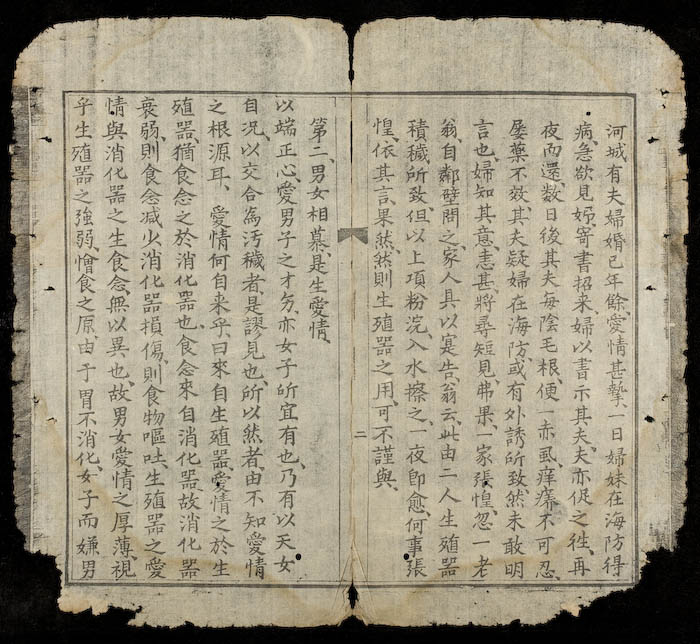 河城有夫婦婚已年餘、愛情甚摯、一日婦妹在海防得
病、急欲見姊、寄書招来、婦以書示其夫、夫亦促之徃、再
夜而還、数日後其夫每陰毛根、便一赤虱、痒癢不可忍、
屡藥不效、其夫疑婦在海防、或有外誘所致、然未敢明
言也、婦知其意、恚甚、將尋短見、弗果、一家張惶、忽一老
翁自鄰壁聞之、家人具以寔告、翁云、此由二人生殖器
積穢所致、但以上項粉浣入水擦之、一夜即愈、何事張
惶、依其言、果然、然則生殖器之用、可不謹與、
二
第二、男女相慕、是生愛情、
以端正心、愛男子之才、亦女子所宜有也、乃有以天女
自况、以交合為汚穢者、是謬見也、所以然者、由不知愛情
之根源耳、愛情何自来乎、曰來自生殖器、愛情之於生
殖器、猶食念之於消化器也、食念來自消化器、故消化器
衰弱、則食念减少、消化器損傷、則食物嘔吐、生殖器之愛
情、與消化器之生食念、無以異也、故男女愛情之厚薄、視
乎生殖器之強弱、憎食之原、由于胃不消化、女子而嫌男